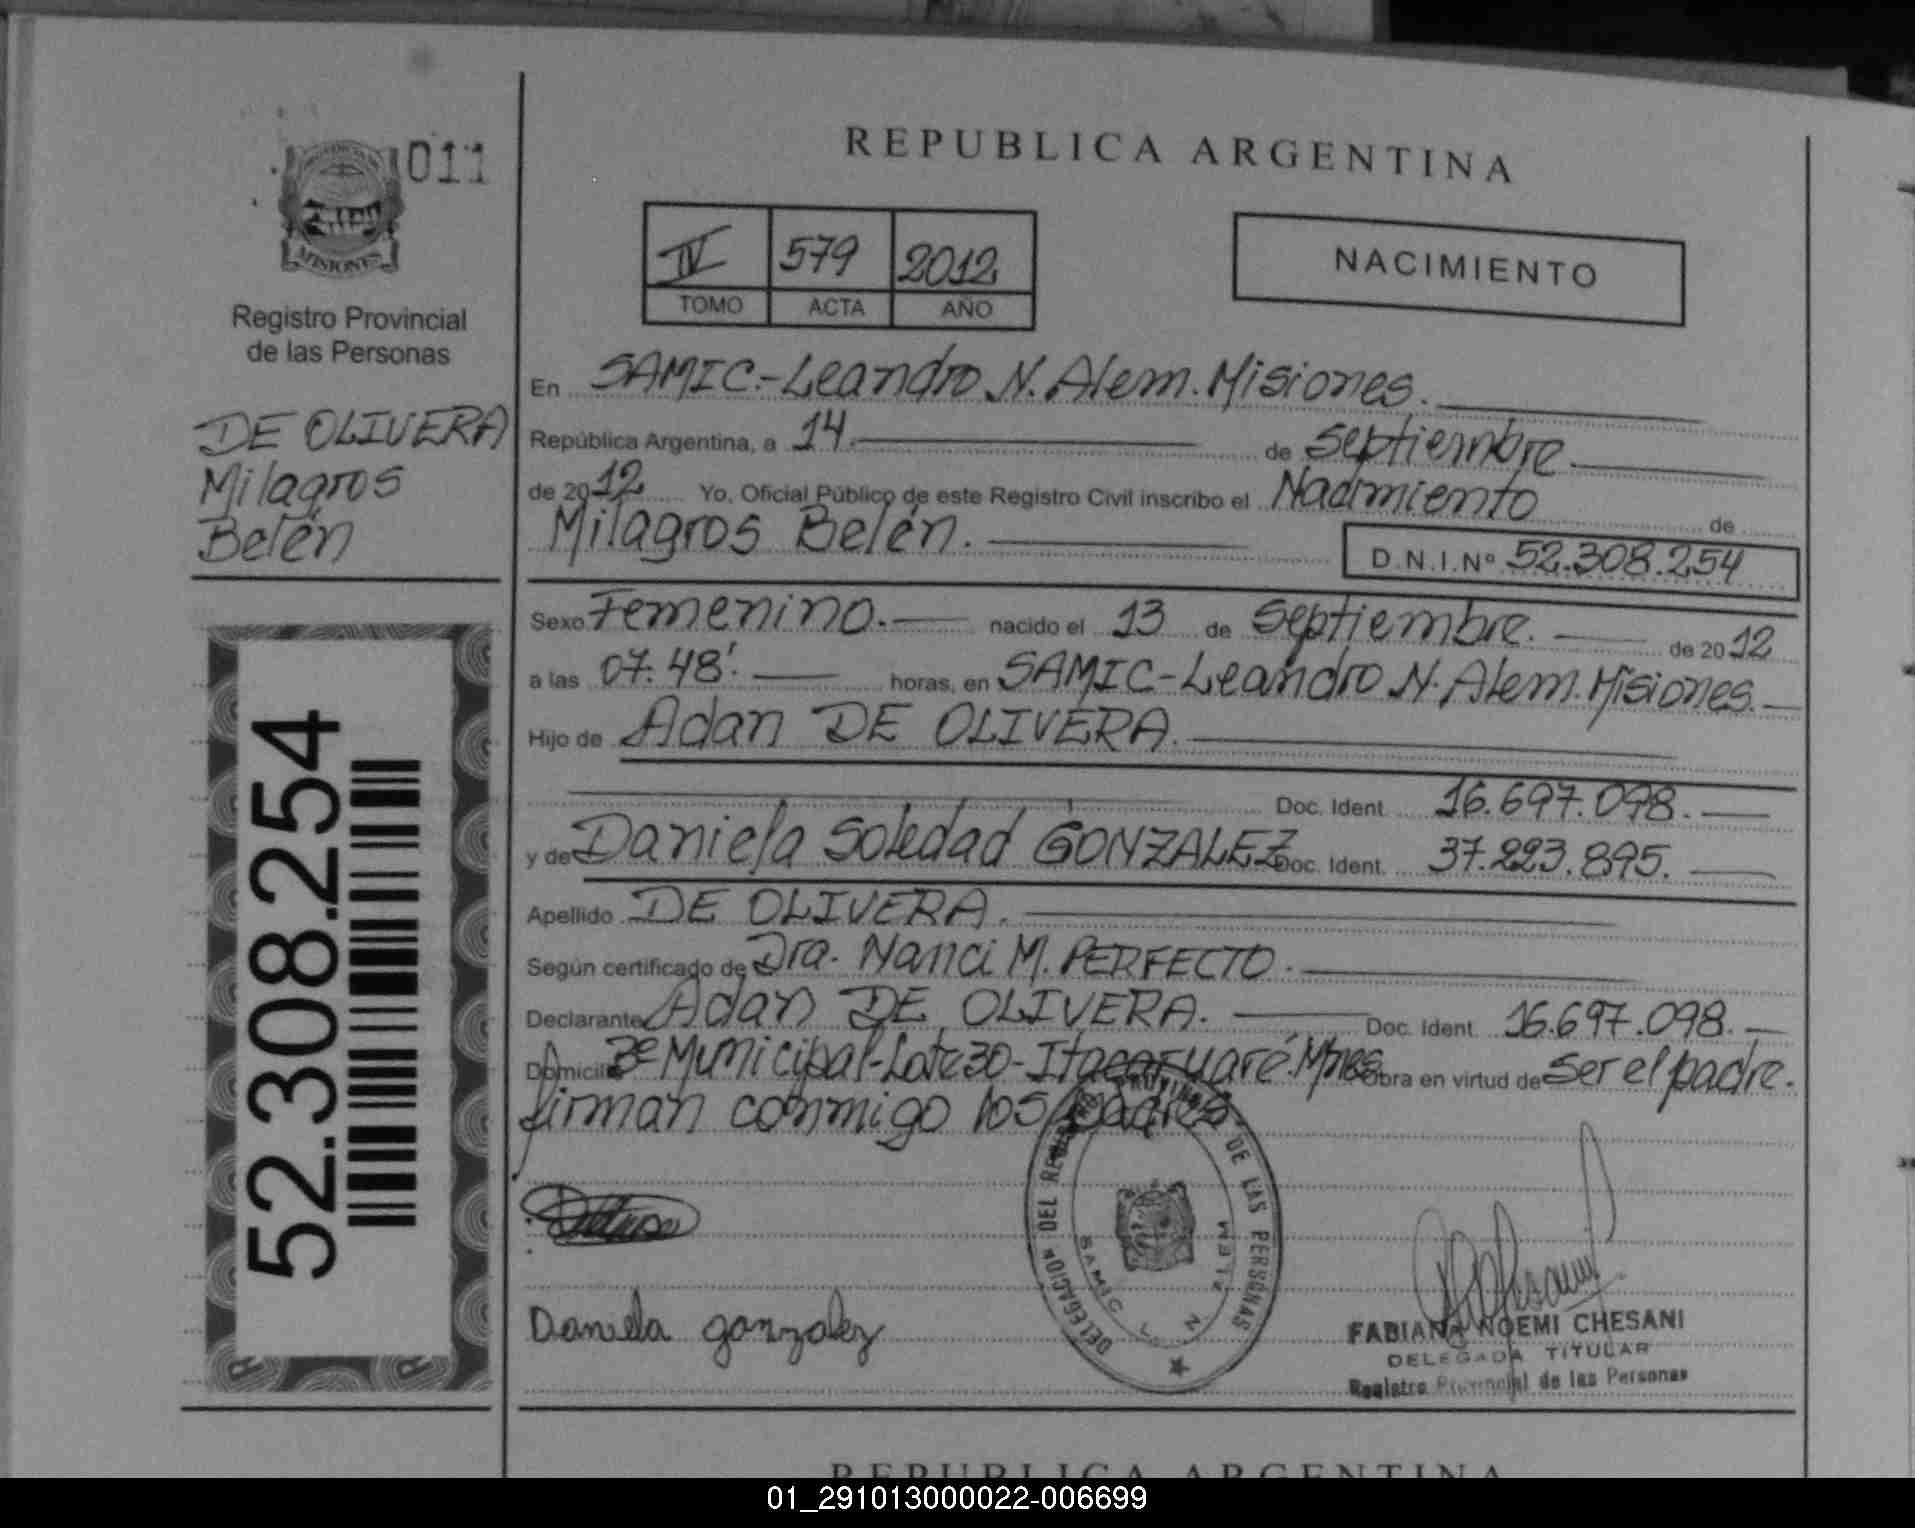 011
MISIONES
Registro Provincial
de las Personas
DE OLIVERA
Milagros
Belén
52.308.254
REPUBLICA ARGENTINA
IV 579 2012
TOMO ACTA AÑO
NACIMIENTO
En SAMIC.-Leandro N. Alem. Misiones.
República Argentina, a 14. de Septiembre
de 2012 Yo, Oficial Público de este Registro Civil inscribo el Nacimiento de
Milagros Belén.
D.N.I.Nº 52.308.254
Sexo Femenino. nacido el 13 de Septiembre. de 2012
a las 07:48'. horas, en SAMIC-Leandro N. Alem. Misiones.
Hijo de Adan DE OLIVERA.
Doc. Ident. 16.697.098.
y de Daniela Soledad GONZALEZ Doc. Ident. 37.223.895.
Apellido DE OLIVERA.
Según certificado de Dra. Nanci M. PERFECTO.
Declarante Adan DE OLIVERA. Doc. Ident. 16.697.098.
Domicilio Bº Municipal-Lote 30-Itacaruaré. Mnes Obra en virtud de ser el padre.
firman conmigo los padres
DELEGACION DEL REGISTRO PROVINCIAL DE LAS PERSONAS
SAMIC L. N. ALEM
Daniela gonzalez
FABIANA NOEMI CHESANI
DELEGADA TITULAR
Registro Provincial de las Personas
REPUBLICA ARGENTINA
01_291013000022-006699